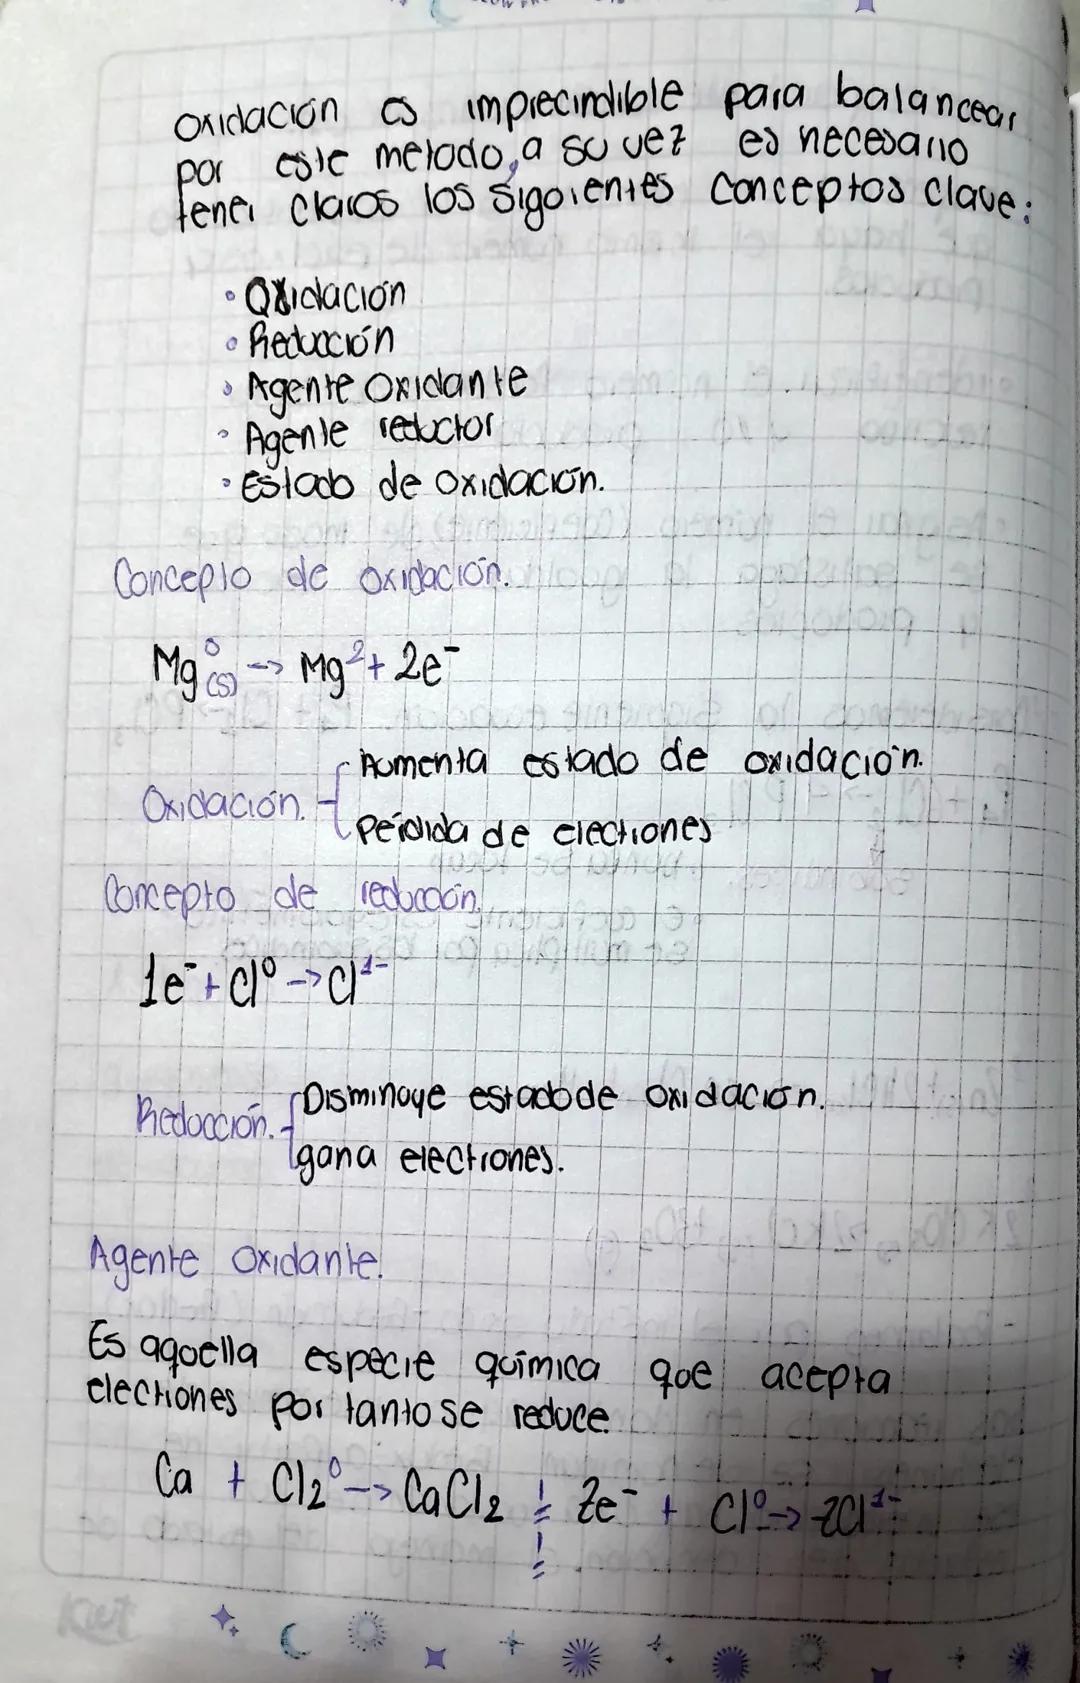 oxidación es imprecindible para balancear
por este metodo, a su vez es necesario
tener claros los siguientes conceptos clave:
• Oxidación
• Reducción
• Agente Oxidante
• Agente reductor
• Estado de oxidación.
Concepto de oxidación.
Mg⁰(s) --> Mg²+ 2e⁻
Oxidación. { Aumenta estado de oxidación.
Pérdida de electrones
Concepto de reducción.
1e⁻ + Cl⁰ --> Cl¹⁻
Reducción. { Disminuye estado de oxidación.
gana electrones.
Agente Oxidante.
Es aquella especie química que acepta
electrones por tanto se reduce.
Ca + Cl₂⁰ --> CaCl₂ 2e⁻ + Cl⁰ --> 2Cl¹⁻
Kiut